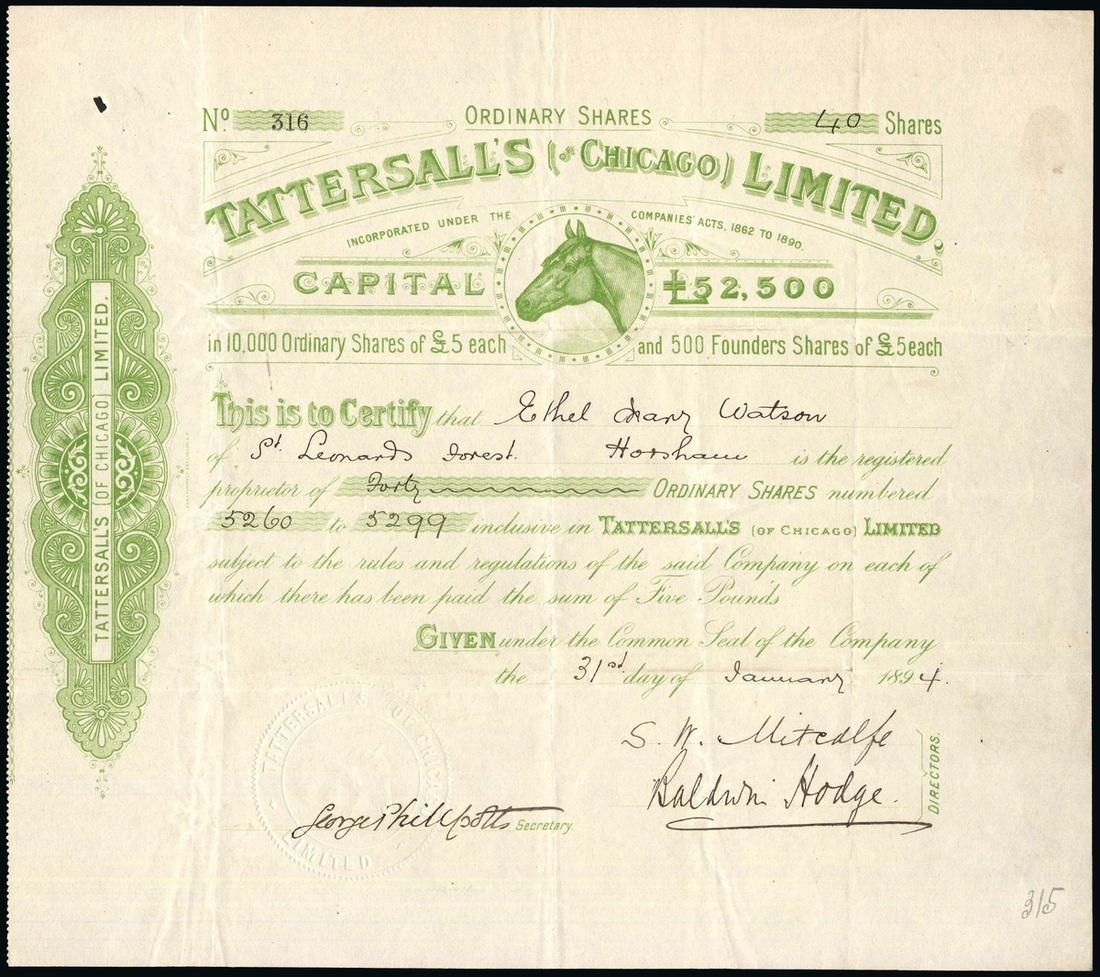 Nº 316 ORDINARY SHARES 40 Shares
TATTERSALL'S (OF CHICAGO) LIMITED.
INCORPORATED UNDER THE COMPANIES' ACTS, 1862 TO 1890.
CAPITAL £52,500
in 10,000 Ordinary Shares of £5 each and 500 Founders Shares of £5 each
This is to Certify that Ethel Mary Watson
of St. Leonards Forest. Horsham is the registered
proprietor of Forty ORDINARY SHARES numbered
5260 to 5299 inclusive in TATTERSALL'S (OF CHICAGO) LIMITED
subject to the rules and regulations of the said Company on each of
which there has been paid the sum of Five Pounds
GIVEN under the Common Seal of the Company
the 31st day of January 1894.
S. W. Metcalfe
Baldwin Hodge.
DIRECTORS.
George Phillpotts Secretary.
TATTERSALL'S (OF CHICAGO) LIMITED.
TATTERSALL'S OF CHICAGO
LIMITED
315